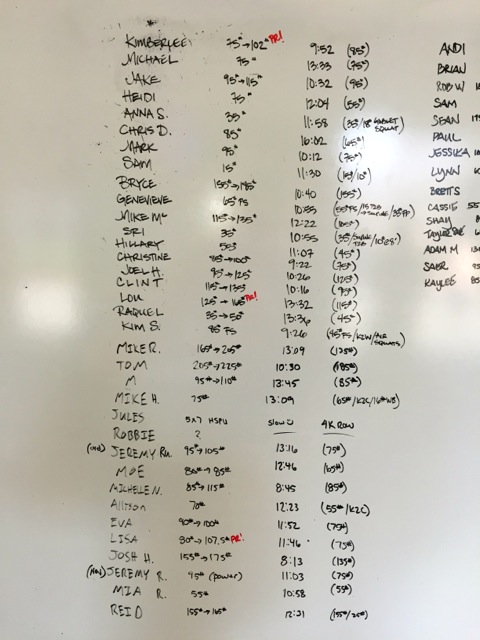 KIMBERLEE 75# → 102# PR! 9:52 (85#)
MICHAEL 75# 13:33 (75#)
JAKE 95# → 115# 10:32 (95#)
HEIDI 75# 12:04 (55#)
ANNA S. 35# 11:58 (35#/18# GOBLET SQUAT)
CHRIS D. 85# 16:02 (65#)
MARK 95# 10:12 (75#)
SAM 15# 11:30 (15#/10#)
BRYCE 155# → 185# 10:40 (155#)
GENEVIEVE 65# PS 10:55
MIKE Mc 115# → 135# 12:22
SRI 35# 10:55
HILLARY 55# 11:07 (45#)
CHRISTINE 85# → 100# 9:22 (75#)
JOEL H. 95# → 125# 10:26 (125#)
CLINT 115# → 135# 10:16 (95#)
LOU 125# → 165# PR! 13:32 (115#)
RAQUEL 35# → 55# 13:36 (45#)
KIM S. 85# PS 9:26 (45# PS/K2W/AIR SQUATS)
MIKE R. 165# → 205# 13:09 (135#)
TOM 205# → 225# 10:30 (185#)
M 95# → 110# 13:45 (85#)
MIKE H. 75# 13:09 (65#/K2C/16# WB)
JULES 5x7 HSPU SLOW 4K ROW
ROBBIE ?
JEREMY RU. 95# → 105# 13:16 (75#)
MOE 80# → 85# 12:46 (65#)
MICHELE N. 85# → 115# 8:45 (85#)
Allison 70# 12:23 (55#/K2C)
EVA 90# → 100# 11:52 (75#)
LISA 80# → 107.5# PR! 11:46 (75#)
JOSH H. 155# → 175# 8:13 (135#)
JEREMY R. 95# (power) 11:03 (75#)
MIA R. 55# 10:58 (55#)
REID 155# → 165# 12:21
ANDI
BRIAN
ROB W
SAM
SEAN
PAUL
JESSIKA
LYNN
BRETTS
CASSIE 55
SHAY
ADAM M
SABR
KAYLEE